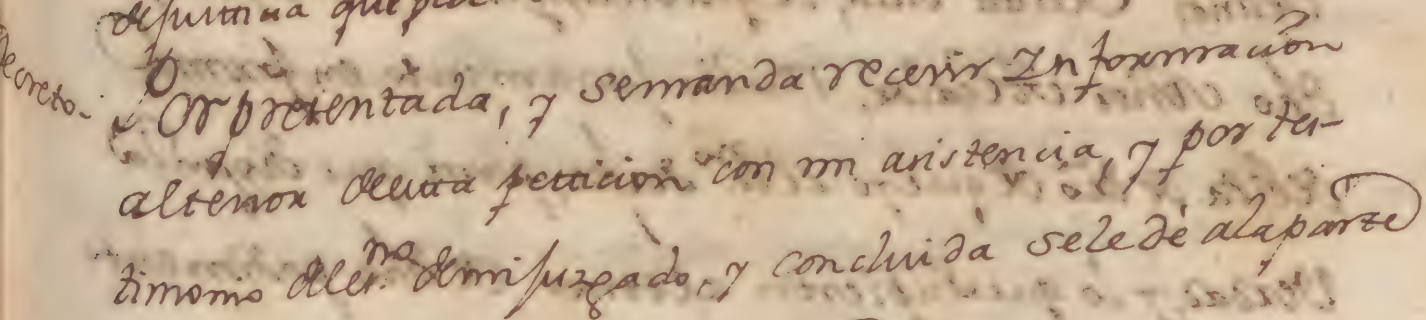 de justicia que pide
Decreto-
Por presentada, y semanda recevir Informacion
altenor deesta peticion con mi asistencia, y por tes-
timonio del es.no demijuzgado, y concluida sele dè ala parte